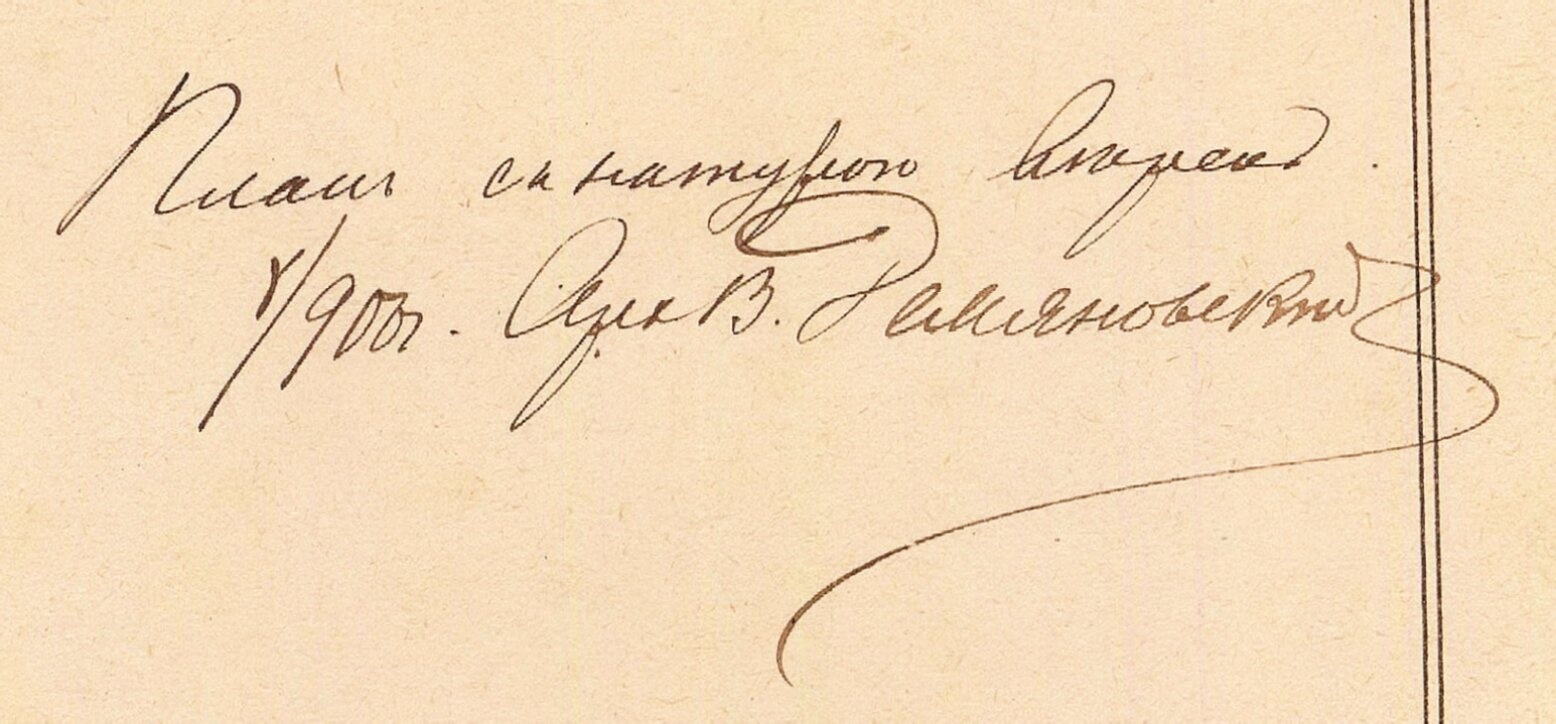 Планъ съ натурою вѣренъ.
1900 г. Арх. В. Демяновский